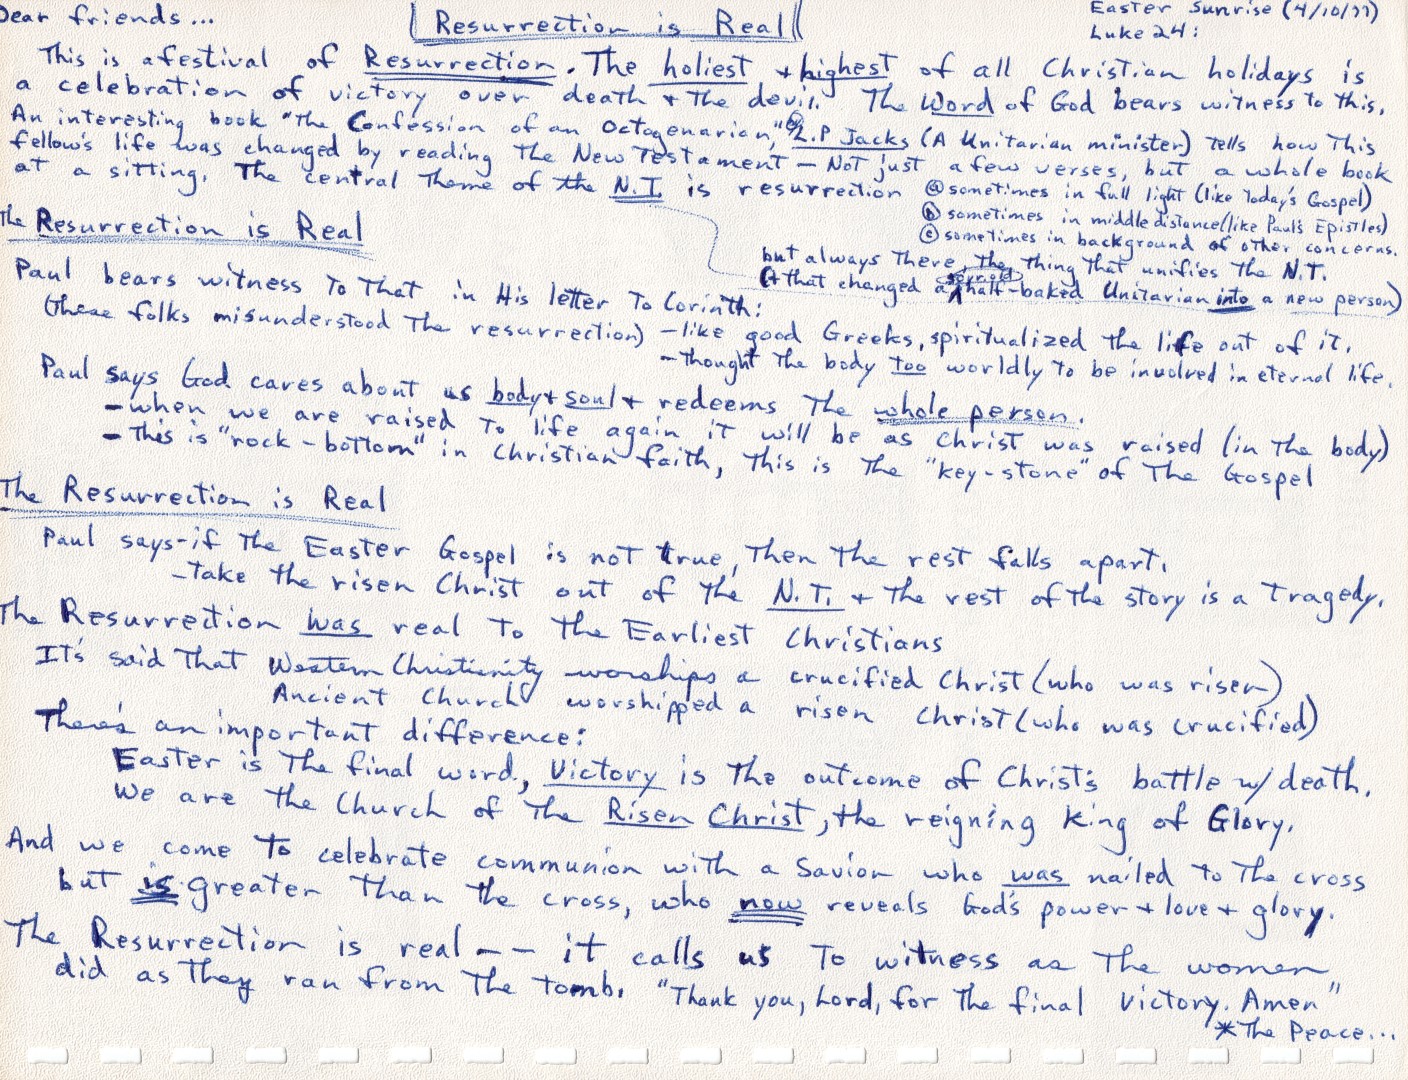 Dear friends...
Resurrection is Real
Easter Sunrise (4/10/77)
Luke 24:
This is a festival of Resurrection. The holiest + highest of all Christian holidays is
a celebration of victory over death + the devil. The Word of God bears witness to this.
An interesting book "The Confession of an Octogenarian," by L.P Jacks (A Unitarian minister) tells how this
fellow's life was changed by reading the New Testament - Not just a few verses, but a whole book
at a sitting. The central theme of the N.T. is resurrection
ⓐ sometimes in full light (like today's Gospel)
ⓑ sometimes in middle distance (like Paul's Epistles)
ⓒ sometimes in background of other concerns.
but always there, the thing that unifies the N.T.
(+ that changed a half-baked Unitarian into a new person)
The Resurrection is Real
Paul bears witness to that in His letter to Corinth:
(these folks misunderstood the resurrection) - like good Greeks, spiritualized the life out of it.
- thought the body too worldly to be involved in eternal life.
Paul says God cares about us body + soul + redeems the whole person.
- when we are raised to life again it will be as Christ was raised (in the body)
- This is "rock-bottom" in Christian faith, this is the "key-stone" of the Gospel
The Resurrection is Real
Paul says - if the Easter Gospel is not true, then the rest falls apart.
- take the risen Christ out of the N.T. + the rest of the story is a tragedy.
The Resurrection was real to the Earliest Christians
It's said that Western Christianity worships a crucified Christ (who was risen)
Ancient Church worshipped a risen Christ (who was crucified)
There's an important difference:
Easter is the final word, Victory is the outcome of Christ's battle w/ death.
We are the Church of the Risen Christ, the reigning King of Glory.
And we come to celebrate communion with a Savior who was nailed to the cross
but is greater than the cross, who now reveals God's power + love + glory.
The Resurrection is real -- it calls us to witness as the women
did as they ran from the tomb. "Thank you, Lord, for the final victory. Amen"
*The Peace...